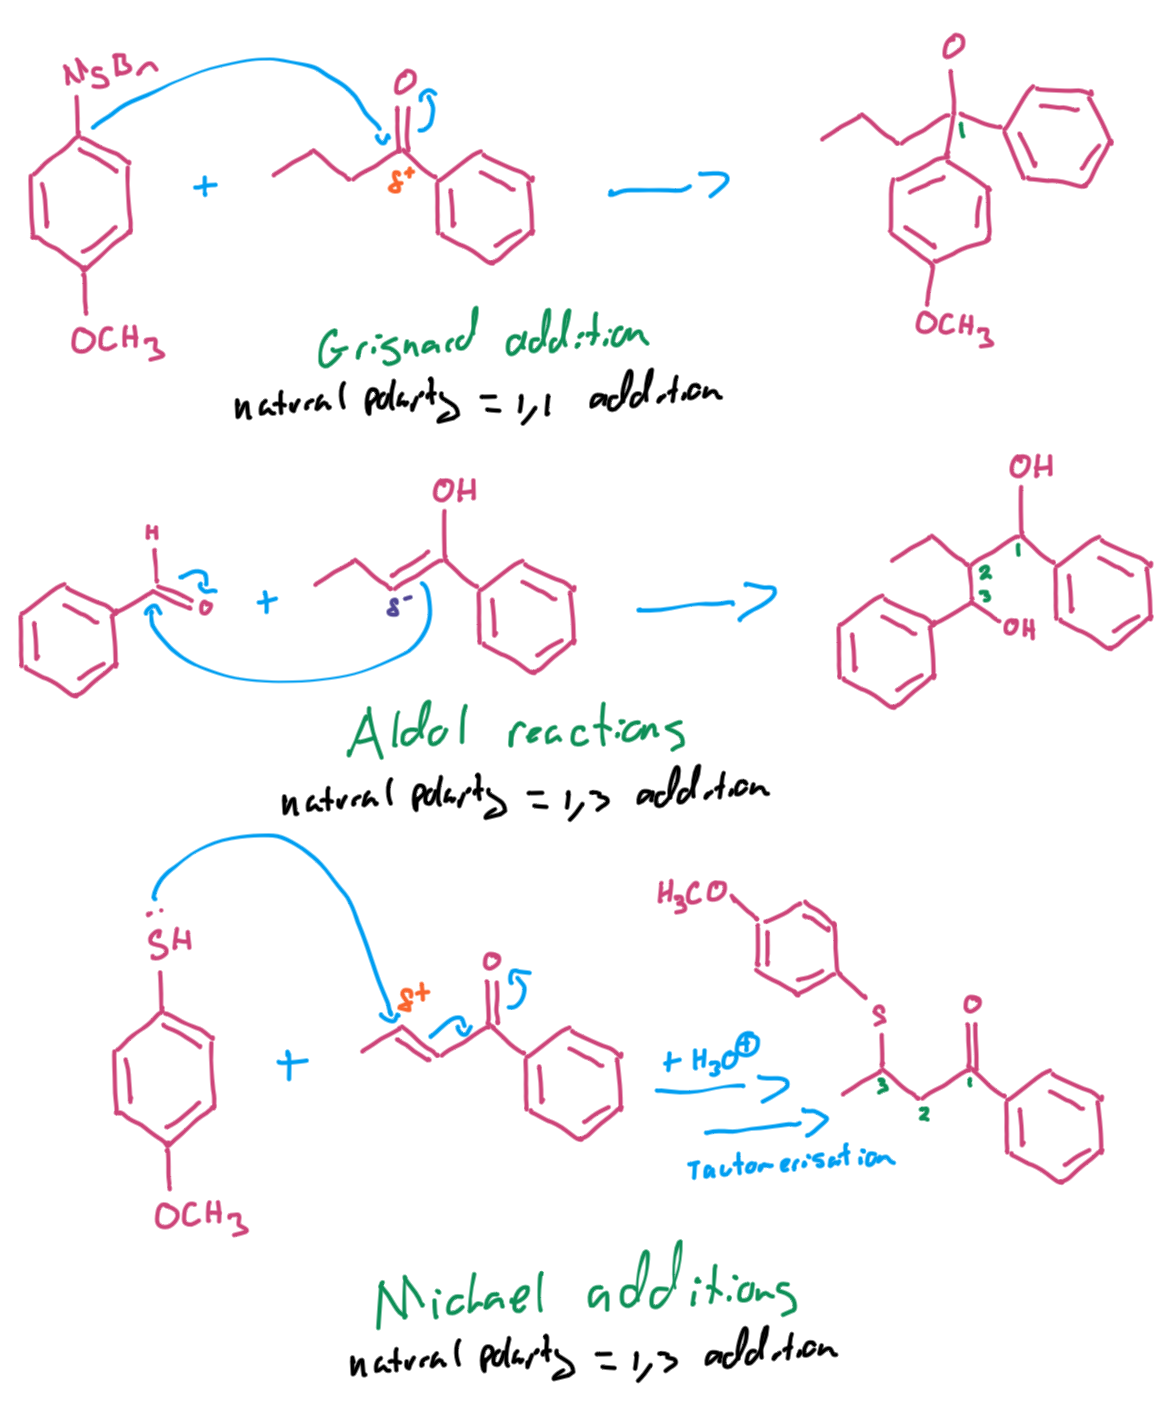 MgBr
O
δ+
+
O
1
OCH3
OCH3
Grignard addition
natural polarity = 1,1 addition
OH
OH
H
O
+
δ-
1
2
3
OH
Aldol reactions
natural polarity = 1,3 addition
H3CO
SH
O
δ+
S
O
+
+ H3O+
3
1
2
Tautomerisation
OCH3
Michael additions
natural polarity = 1,3 addition